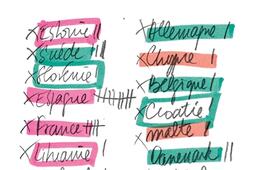 X Estonie ||
X Suède |||
X Slovénie
X Espagne
X France
X Lituanie |
X Allemagne |
X Chypre |
X Belgique |
X Croatie
X malte |
X Danemark ||